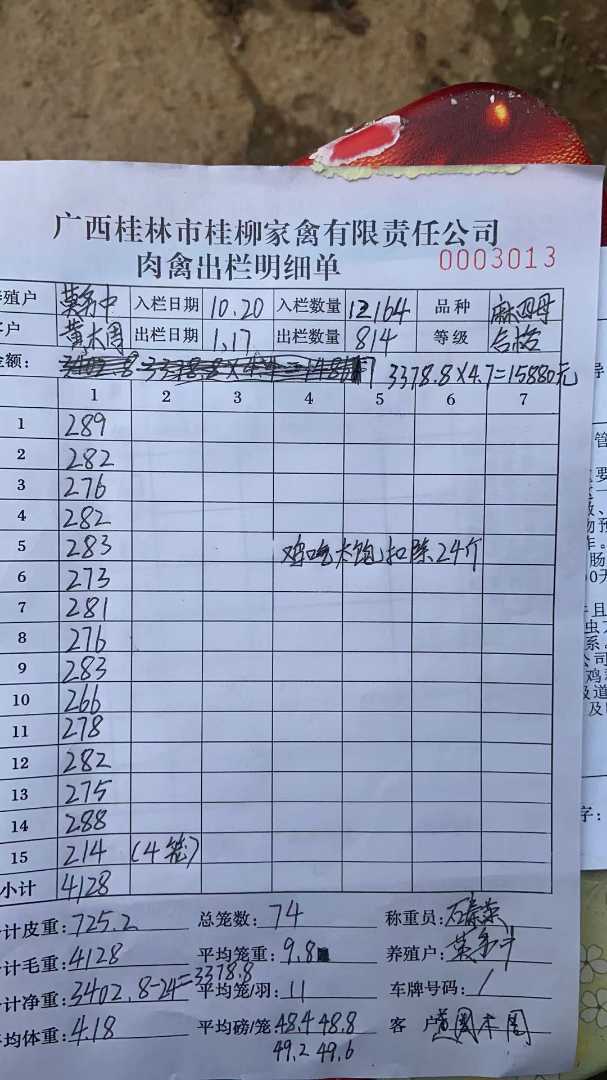 广西桂林市桂柳家禽有限责任公司
肉禽出栏明细单 0003013
殖户 入栏日期 10.20 入栏数量 12164 品种
户 黄木周 出栏日期 1.17 出栏数量 814 等级 合格
金额: 3378.8×4.7=15880元
1 2 3 4 5 6 7
1 289
2 282
3 276
4 282
5 283 鸡吃太饱扣除24斤
6 273
7 281
8 276
9 283
10 266
11 278
12 282
13 275
14 288
15 214 (4笼)
小计 4128
计皮重: 725.2 总笼数: 74 称重员:
计毛重: 4128 平均笼重: 9.8 养殖户:
计净重: 3402.8-24=3378.8 平均笼/羽: 11 车牌号码: /
均体重: 4.18 平均磅/笼 48.4 48.8 客户 木周
49.2 49.6